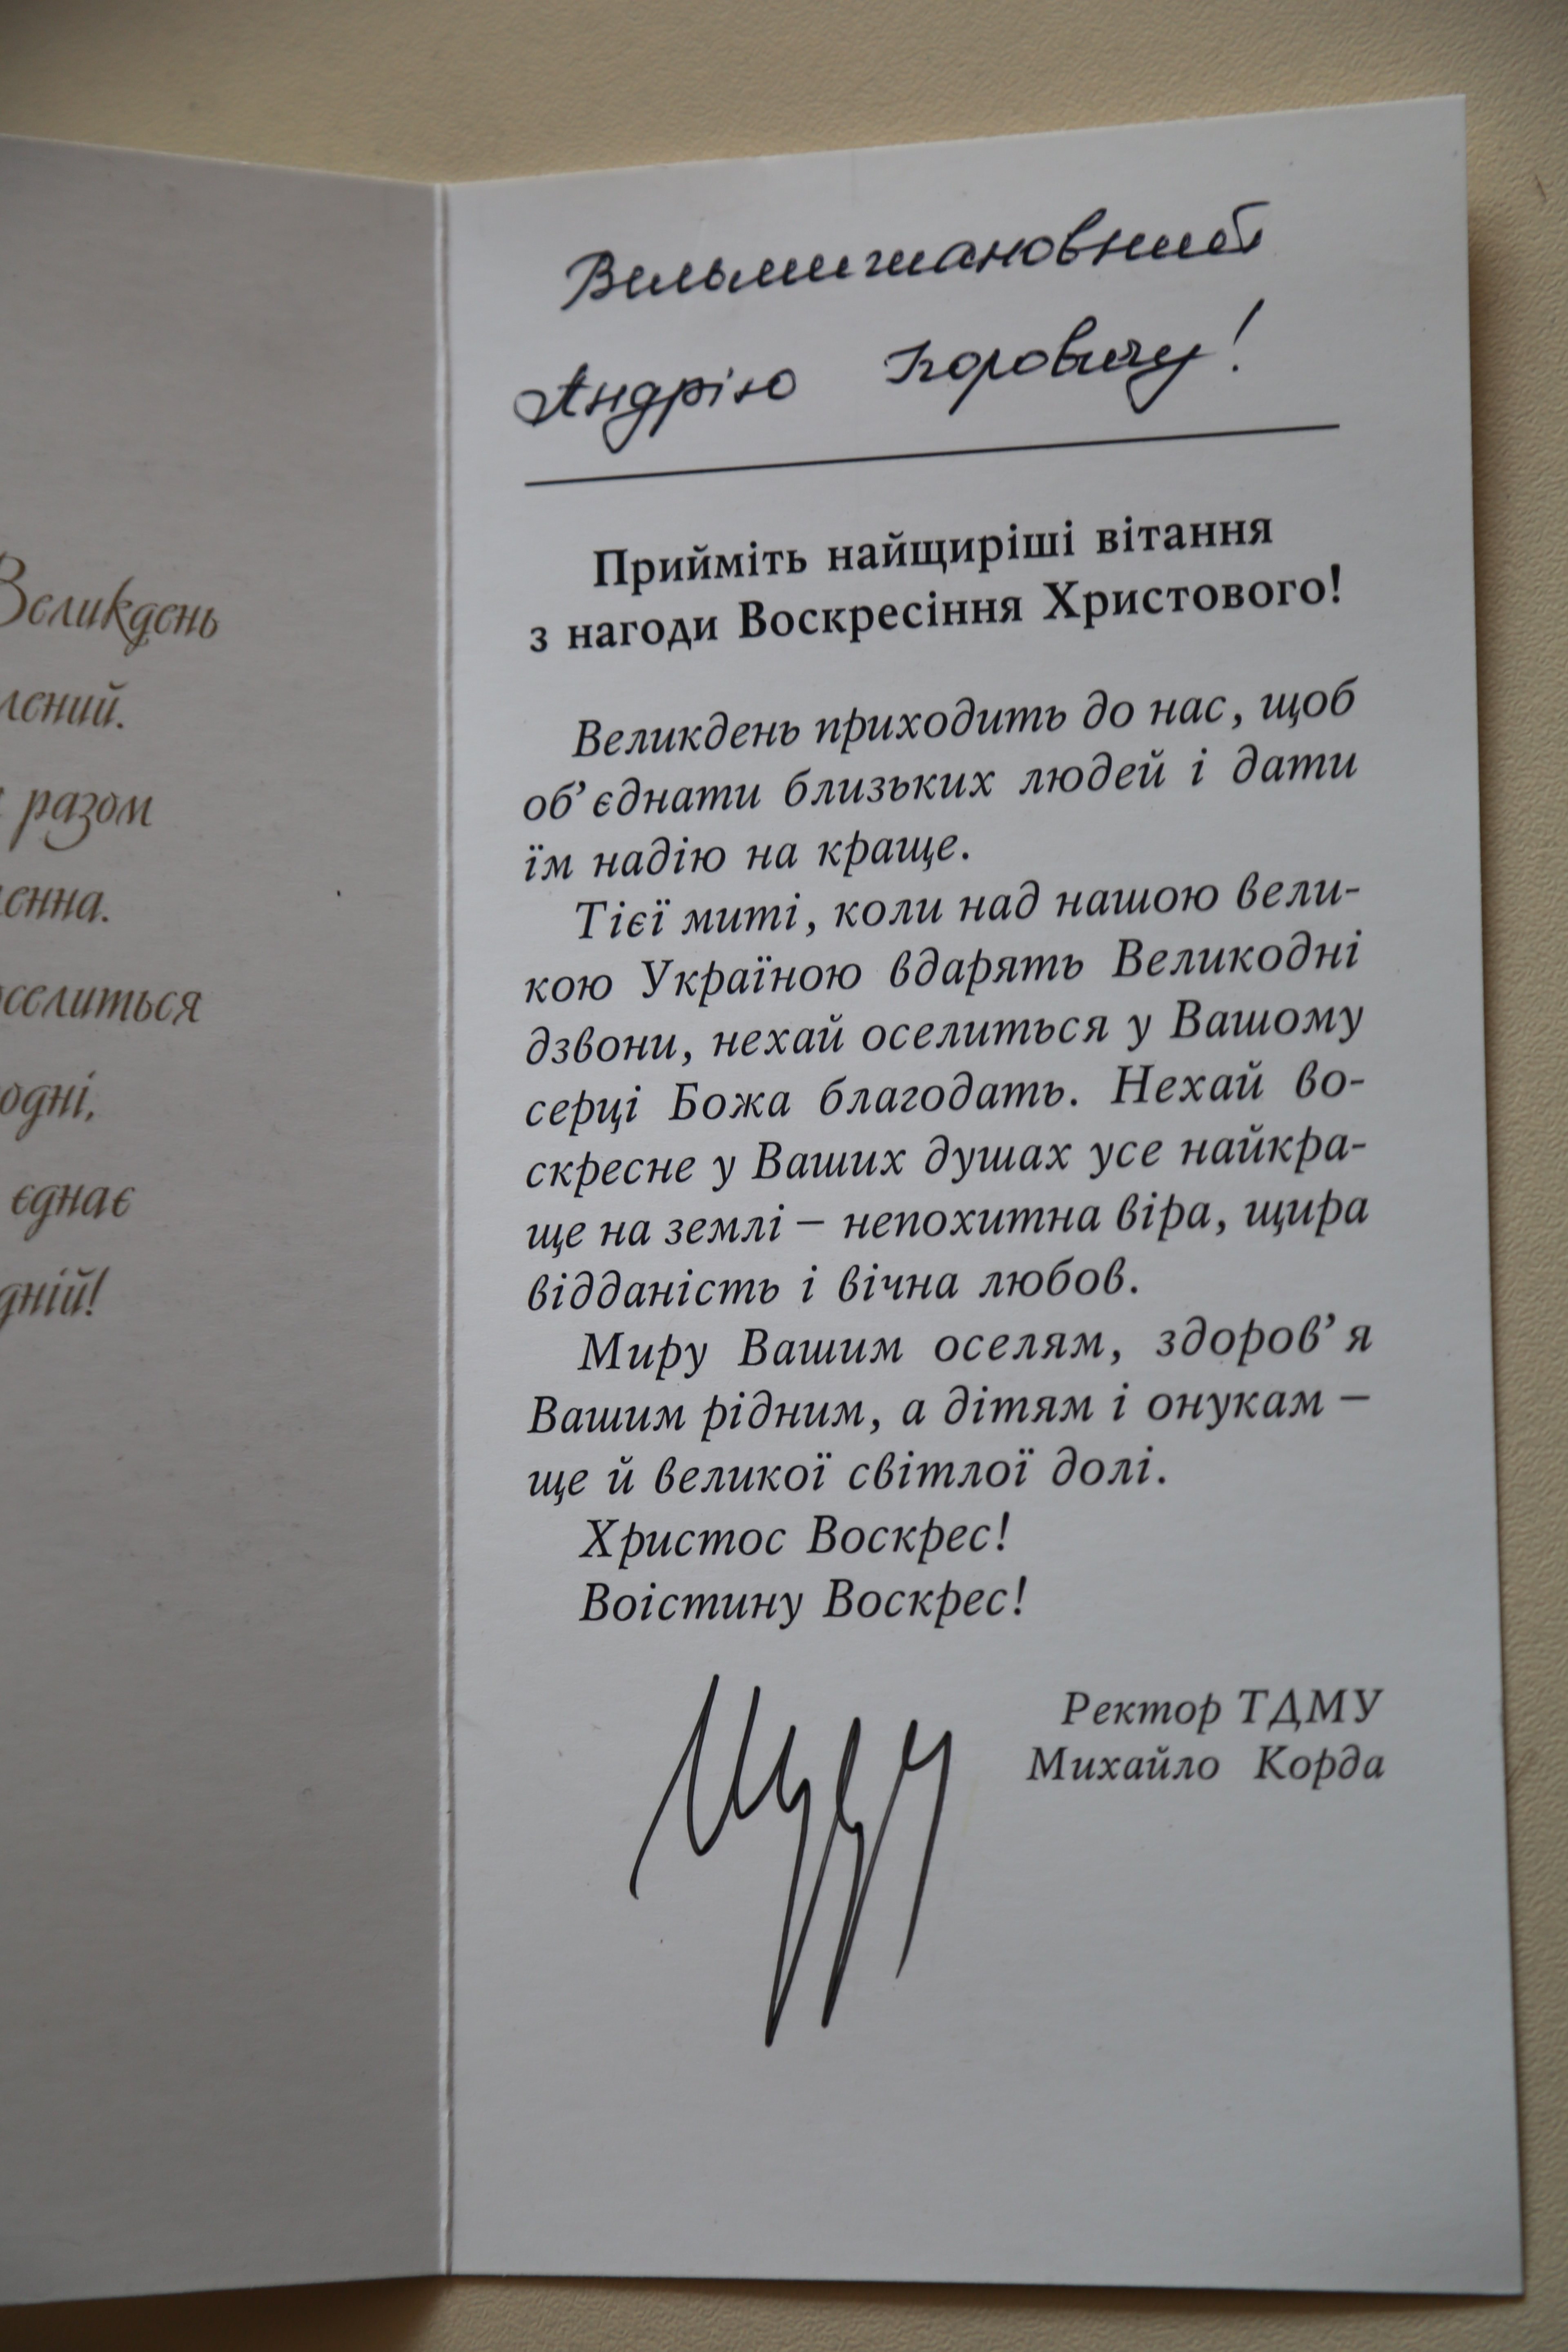 Великдень
лений.
разом
енна.
оселиться
одні,
єднає
дній!
Вельмишановний
Андрію Ігоровичу!
Прийміть найщиріші вітання
з нагоди Воскресіння Христового!
Великдень приходить до нас, щоб
об’єднати близьких людей і дати
їм надію на краще.
Тієї миті, коли над нашою вели-
кою Україною вдарять Великодні
дзвони, нехай оселиться у Вашому
серці Божа благодать. Нехай во-
скресне у Ваших душах усе найкра-
ще на землі – непохитна віра, щира
відданість і вічна любов.
Миру Вашим оселям, здоров’я
Вашим рідним, а дітям і онукам –
ще й великої світлої долі.
Христос Воскрес!
Воістину Воскрес!
Ректор ТДМУ
Михайло Корда